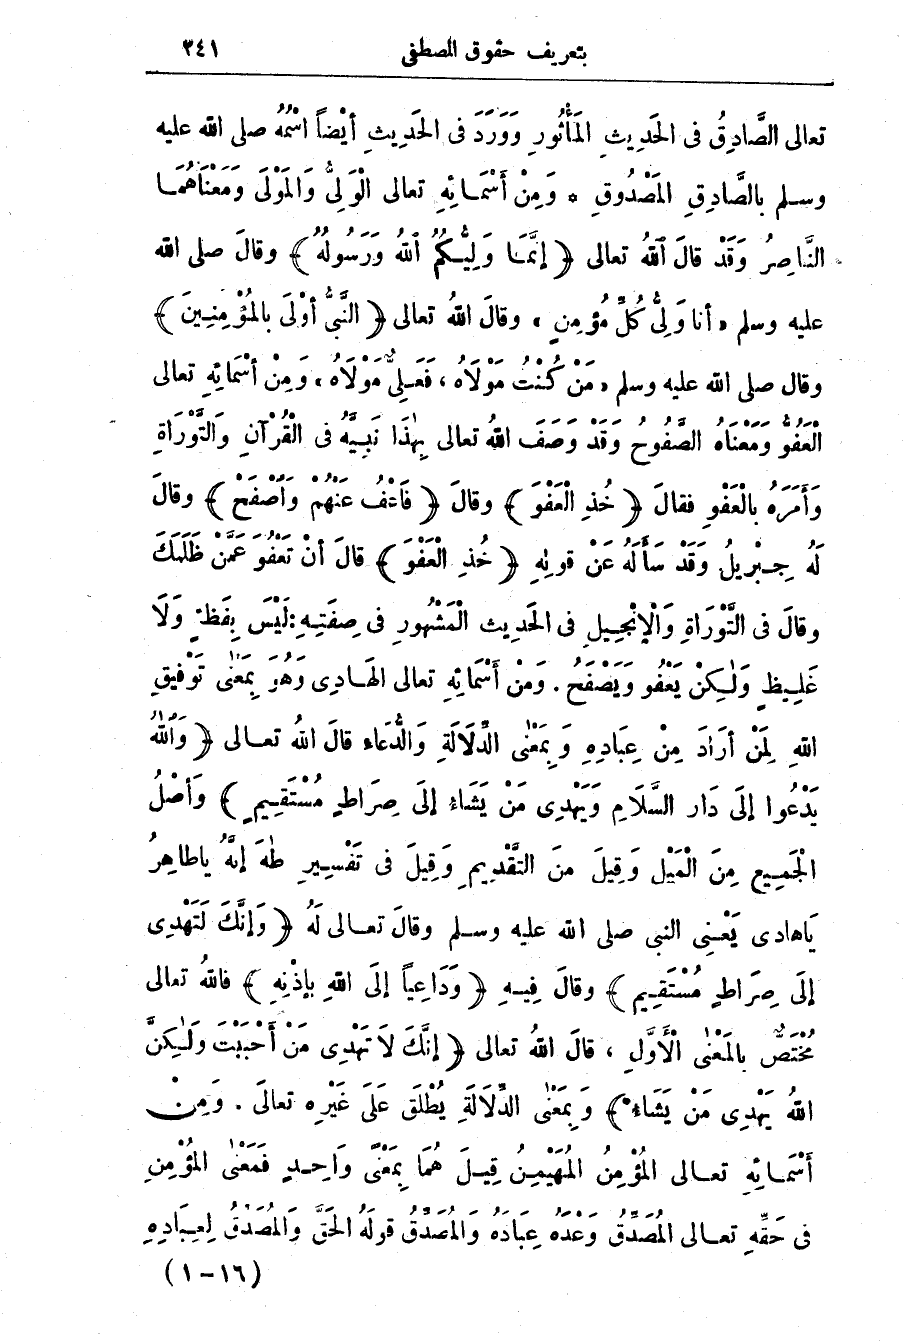 بتعريف حقوق المصطفى ٢٤١
تعالى الصَّادِقُ فى الحَدِيثِ المَأْثُورِ وَوَرَدَ فى الحَدِيثِ أيْضاً اسْمُهُ صلى الله عليه
وسلم بالصَّادِقِ المَصْدُوقِ * وَمِنْ أَسْمَائِهِ تعالى الْوَلِىُّ وَالمَوْلَى وَمَعْنَاهُمَا
النَّاصِرُ وَقَدْ قالَ اللهُ تعالى ﴿ إنَّمَا وَلِيُّكُمُ اللهُ وَرَسُولُهُ ﴾ وقالَ صلى الله
عليه وسلم «أنا وَلِىُّ كُلِّ مُؤمِنٍ» وقالَ اللهُ تعالى ﴿ النَّبِىُّ أوْلَى بالمُؤْمِنِينَ ﴾
وقال صلى الله عليه وسلم «مَنْ كُنْتُ مَوْلَاهُ، فَعَلِىٌّ مَوْلَاهُ» وَمِنْ أسْمَائِهِ تعالى
الْعَفُوُّ وَمَعْنَاهُ الصَّفُوحُ وَقَدْ وَصَفَ اللهُ تعالى بِهٰذَا نَبِيَّهُ فى الْقُرْآنِ وَالتَّوْرَاةِ
وَأَمَرَهُ بالْعَفْوِ فقالَ ﴿ خُذِ الْعَفْوَ ﴾ وقالَ ﴿ فَاعْفُ عَنْهُمْ وَاصْفَحْ ﴾ وقالَ
لَهُ جِبْرِيلُ وَقَدْ سَأَلَهُ عَنْ قولِهِ ﴿ خُذِ الْعَفْوَ ﴾ قالَ أنْ تَعْفُوَ عَمَّنْ ظَلَمَكَ
وقالَ فى التَّوْرَاةِ وَالْإنْجِيلِ فى الحَدِيثِ الْمَشْهُورِ فى صِفَتِهِ: لَيْسَ بِفَظّ وَلَا
غَلِيظٍ وَلٰكِنْ يَعْفُو وَيَصْفَحُ. وَمنْ أسْمَائِهِ تعالى الهَادِى وَهُوَ بِمَعْنَى تَوْفِيقِ
اللهِ لِمَنْ أرَادَ مِنْ عِبَادِهِ وَ بِمَعْنَى الدِّلَالَةِ وَالدُّعَاءِ قالَ اللهُ تعالى ﴿ وَاللهُ
يَدْعُوا إلَى دَارِ السَّلَامِ وَيَهْدِى مَنْ يَشَاءُ إلَى صِرَاطٍ مُسْتَقِيمٍ ﴾ وَأصْلُ
الْجَمِيعِ مِنَ الْمَيْلِ وَقِيلَ منَ التَّقْدِيمِ وَقِيلَ فى تَفْسِيرِ طٰهَ إنَّهُ ياطاهِرُ
يَاهَادى يَعْنِى النبى صلى الله عليه وسلم وقالَ تعالى لَهُ ﴿ وَإنَّكَ لَتَهْدِى
إلَى صِرَاطٍ مُسْتَقِيمٍ ﴾ وقالَ فِيهِ ﴿ وَدَاعِياً إلَى اللهِ بإذْنِهِ ﴾ فاللهُ تعالى
مُخْتَصٌّ بالمَعْنَى الْأَوَّلِ، قالَ اللهُ تعالى ﴿ إنَّكَ لَا تَهْدِى مَنْ أحْبَبْتَ وَلٰكِنَّ
اللهَ يَهْدِى مَنْ يَشَاءُ ﴾ وَ بِمَعْنَى الدِّلَالَةِ يُطْلَقُ عَلَى غَيْرِهِ تعالَى. وَمِنْ
أَسْمَائِهِ تعالى المُؤْمِنُ المُهَيْمِنُ قِيلَ هُمَا بِمَعْنًى وَاحِدٍ فَمَعْنَى المُؤْمِنِ
فى حَقِّهِ تعالى المُصَدِّقُ وَعْدَهُ عِبَادَهُ وَالمُصَدِّقُ قولَهُ الحَقَّ وَالمُصَدِّقُ لِعِبَادِهِ
(١٦-١)